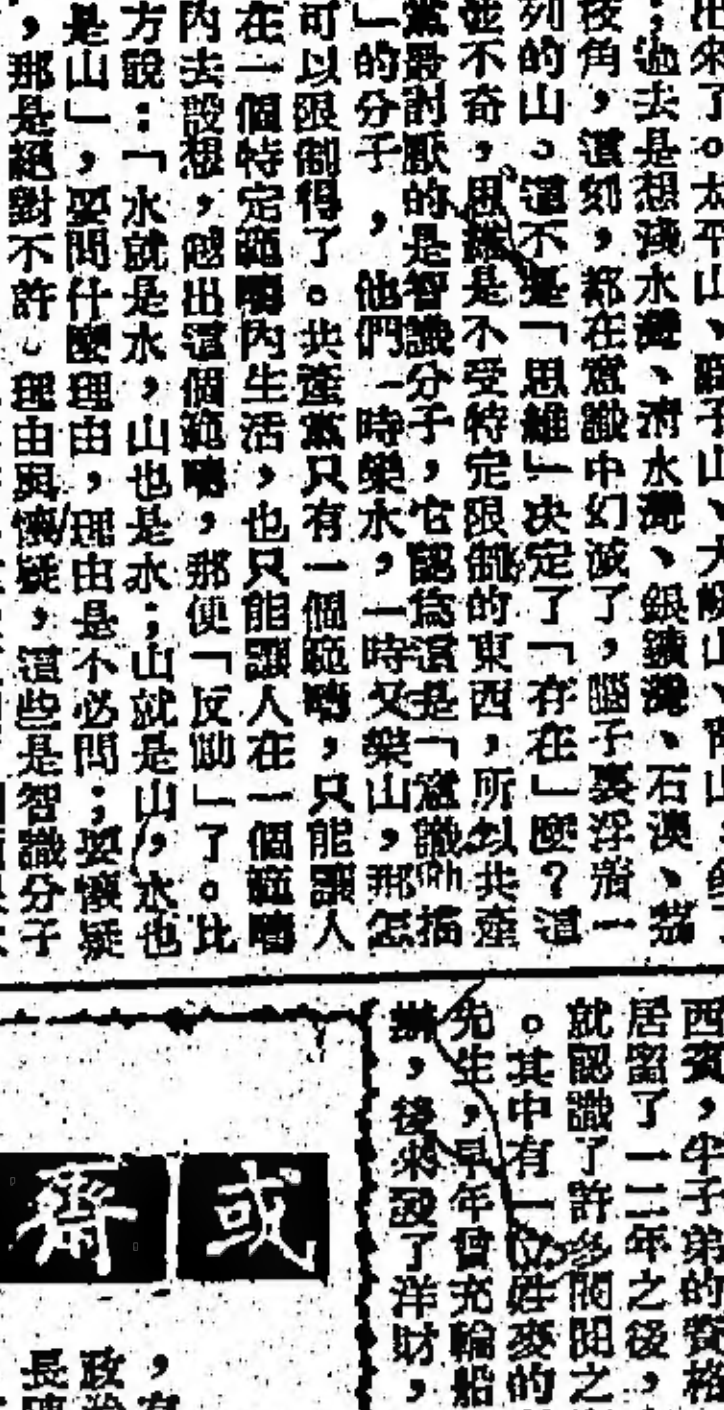 出來了。太平山、獅子山、大
;過去是想淺水灣、清水灣、銀鑛灣、石澳、
夜角,這刻,都在意識中幻滅了,腦子裏浮着一
列的山。這不是「思維」決定了「存在」麼?這
並不奇,思維是不受特定限制的東西,所以共產
黨最討厭的是智識分子,它認爲這是「意識
」的分子,他們一時樂水,一時又樂山,那怎
可以限制得了。共產黨只有一個範疇,只能讓人
在一個特定範疇內生活,也只能讓人在一個範疇
內去設想,越出這個範疇,那便「反動」了。比
方說:「水就是水,山也是水;山就是山,水也
是山」,要問什麼理由,理由是不必問;要懷疑
,那是絕對不許。理由與懷疑,這些是智識分子
西賓,牛子弟的資格
居留了一二年之後,
就認識了許多閥閱之
。其中有一位姓麥的
先生,早年曾充輪船
辦,後來發了洋財,
或齋
,有
政治
長